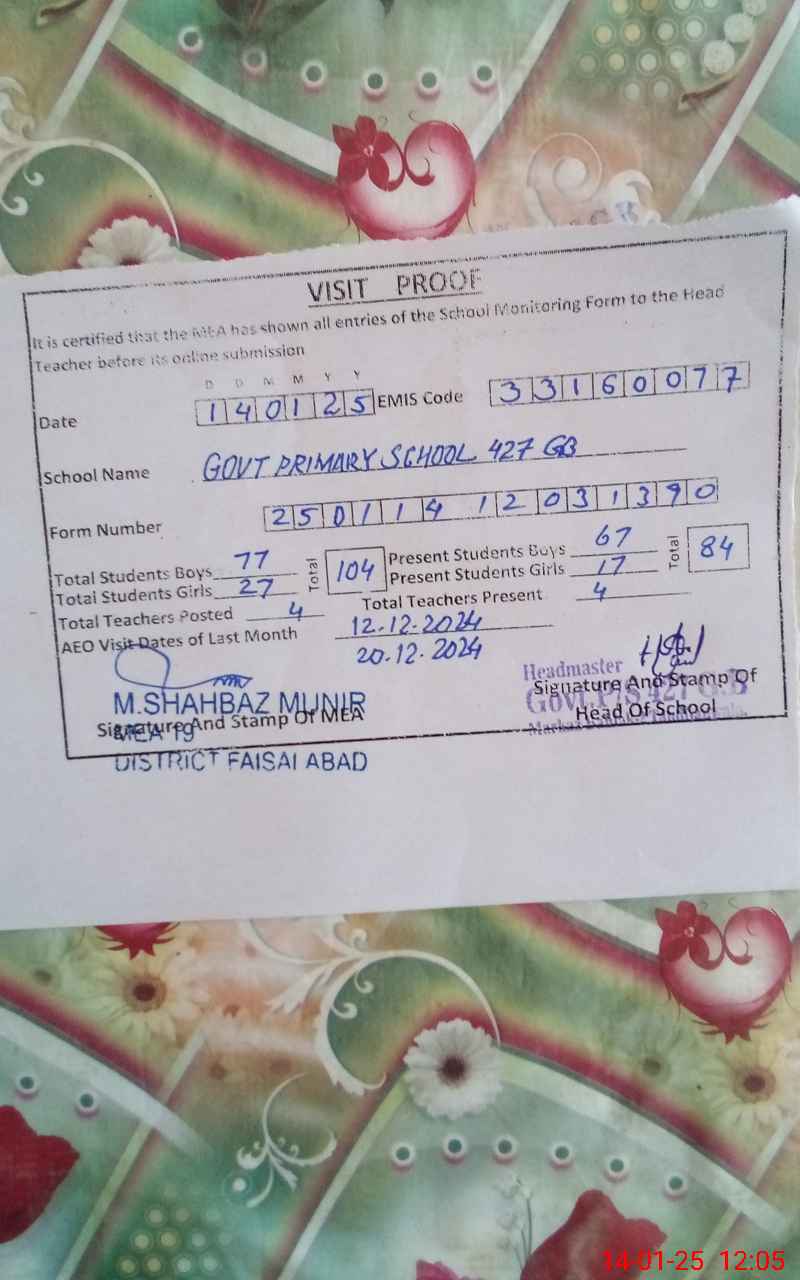 VISIT PROOF
It is certified that the MEA has shown all entries of the School Monitoring Form to the Head
Teacher before its online submission
D D M M Y Y
Date 140125 EMIS Code 33160077
School Name GOVT PRIMARY SCHOOL 427 GB
Form Number 25011412031390
Total Students Boys 77 Total 104 Present Students Boys 67 Total 84
Total Students Girls 27 Present Students Girls 17
Total Teachers Posted 4 Total Teachers Present 4
AEO Visit Dates of Last Month 12.12.2024
20.12.2024
M.SHAHBAZ MUNIR
Signature And Stamp Of MEA
MEA 19
DISTRICT FAISALABAD
Headmaster
Signature And Stamp Of
Govt. P/S 427 G.B
Head Of School
14-01-25 12:05